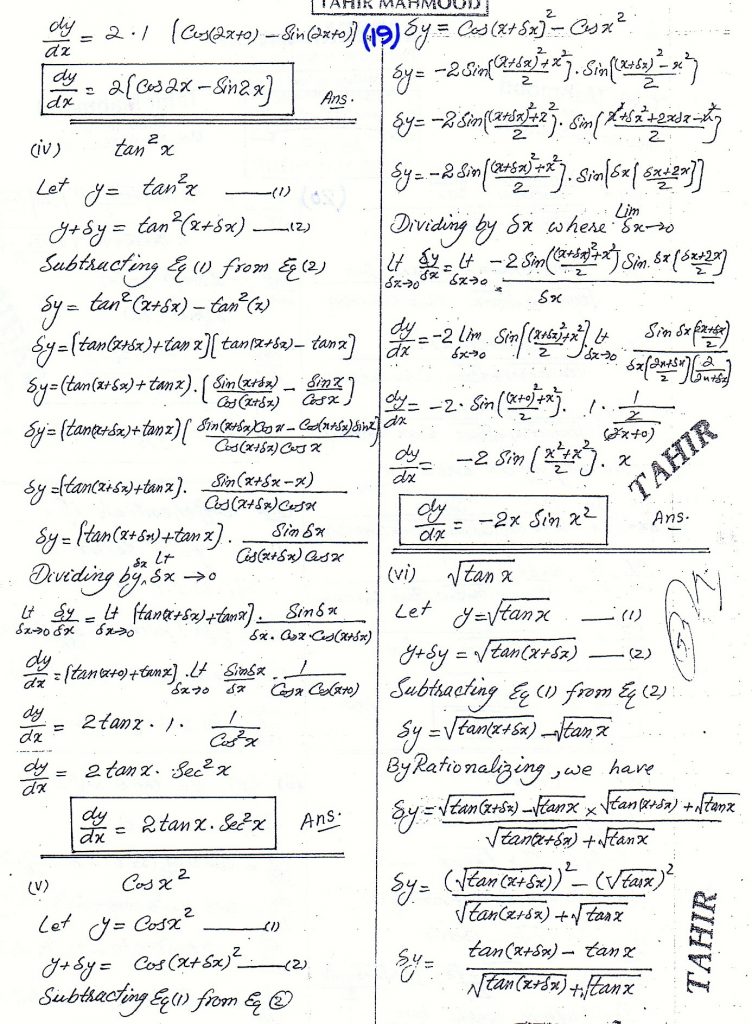 TAHIR MAHMOOD
(19)
dy/dx = 2·1 [Cos(2x+0) – Sin(2x+0)]
dy/dx = 2[Cos2x – Sin2x] Ans.
(iv) tan²x
Let y = tan²x —(1)
y+δy = tan²(x+δx) —(2)
Subtracting Eq (1) from Eq (2)
δy = tan²(x+δx) – tan²(x)
δy = [tan(x+δx)+tanx][tan(x+δx) – tanx]
δy = (tan(x+δx)+tanx).[Sin(x+δx)/Cos(x+δx) – Sinx/Cosx]
δy = [tan(x+δx)+tanx][Sin(x+δx)Cosx – Cos(x+δx)Sinx/Cos(x+δx)Cosx]
δy = [tan(x+δx)+tanx]. Sin(x+δx–x)/Cos(x+δx)Cosx
δy = [tan(x+δx)+tanx]. Sinδx/Cos(x+δx)Cosx
Dividing by δx Lt δx→0
Lt δx→0 δy/δx = Lt δx→0 [tan(x+δx)+tanx]. Sinδx/δx.Cosx.Cos(x+δx)
dy/dx = [tan(x+0)+tanx].Lt δx→0 Sinδx/δx . 1/Cosx Cos(x+0)
dy/dx = 2tanx. 1. 1/Cos²x
dy/dx = 2tanx. Sec²x
dy/dx = 2tanx. Sec²x Ans.
(v) Cosx²
Let y = Cosx² —(1)
y+δy = Cos(x+δx)² —(2)
Subtracting Eq(1) from Eq (2)
δy = Cos(x+δx]² – Cosx²
δy = -2Sin[(x+δx)²+x²/2].Sin[(x+δx)²–x²/2]
δy = -2Sin[(x+δx)²+x²/2]. Sin[x²+δx²+2xδx–x²/2]
δy = -2Sin[(x+δx)²+x²/2].Sin[δx[δx+2x/2]]
Dividing by δx where Lim δx→0
Lt δx→0 δy/δx = Lt δx→0 -2Sin((x+δx)²+x²/2)Sin.δx[δx+2x/2]/δx
dy/dx = -2 Lim δx→0 Sin[(x+δx)²+x²/2] Lt δx→0 Sin δx(2x+δx/2)/δx[2x+δx/2][2/2x+δx]
dy/dx = -2. Sin[(x+0)²+x²/2]. 1. 1/2/(2x+0)
dy/dx = -2 Sin[x²+x²/2]. x
dy/dx = -2x Sin x² Ans.
TAHIR
(vi) √tanx
Let y=√tanx —(1)
y+δy = √tan(x+δx) —(2)
Subtracting Eq (1) from Eq (2)
δy = √tan(x+δx) – √tanx
By Rationalizing, we have
δy = √tan(x+δx) – √tanx × √tan(x+δx) + √tanx/√tan(x+δx) + √tanx
δy = (√tan(x+δx))² – (√tanx)²/√tan(x+δx) + √tanx
δy = tan(x+δx) – tanx/√tan(x+δx) + √tanx
TAHIR